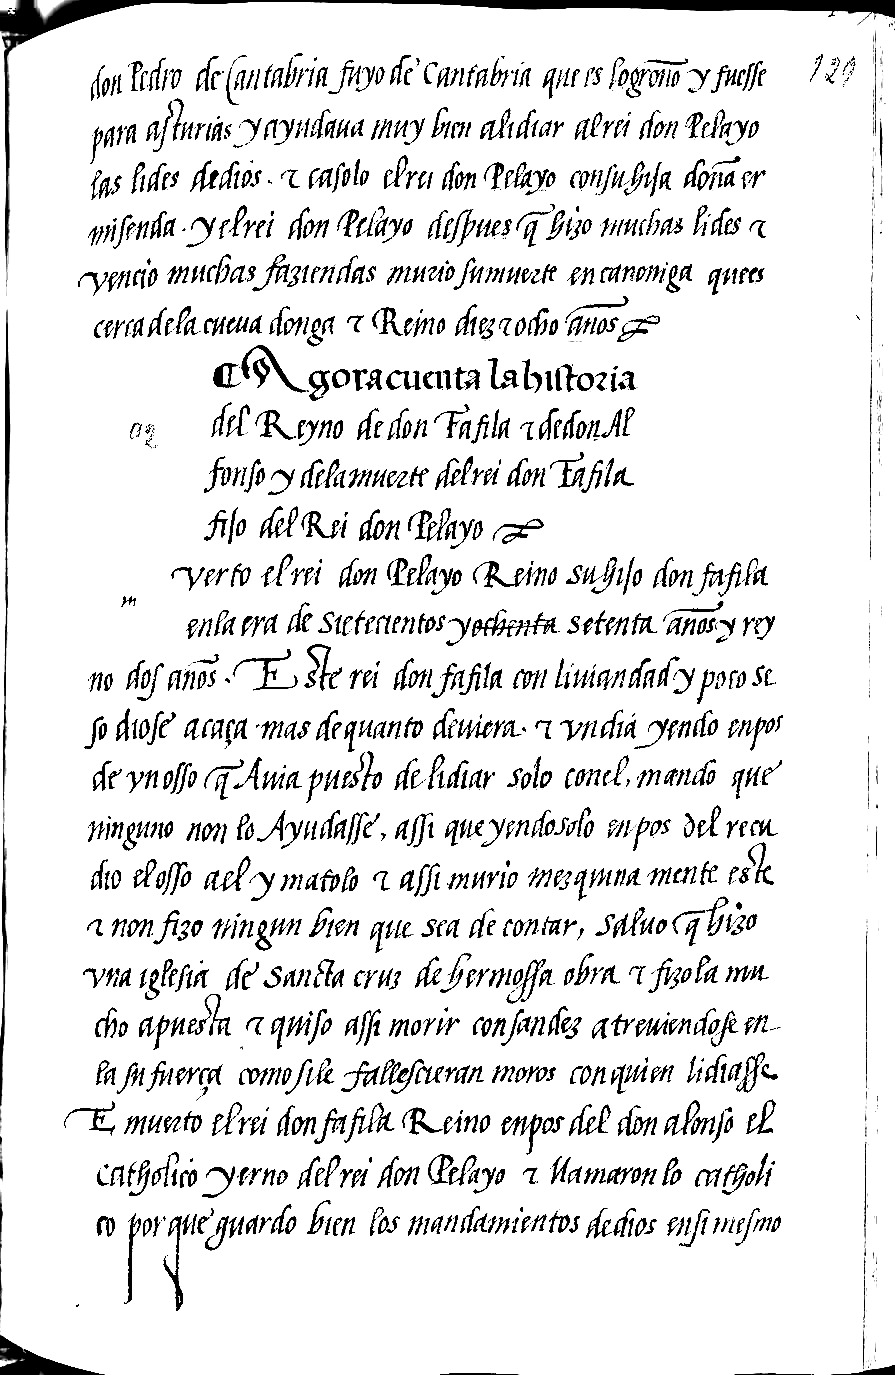 129
don Pedro de Cantabria fuyo de Cantabria que es logroño y fuesse
para asturias y ayudaua muy bien a lidiar al rei don Pelayo
las lides de dios. τ casolo el rei don Pelayo con su hija doña er
misenda. y el rei don Pelayo despues q̃ hizo muchas lides τ
vencio muchas faziendas murio su muerte en canoniga que es
cerca de la cueua donga τ Reino diez τ ocho años
Agora cuenta la historia
del Reyno de don Fafila τ de don Al
fonso y de la muerte del rei don Fafila
fijo del Rei don Pelayo
m
verto el rei don Pelayo Reino su hijo don fafila
en la era de sietecientos y ochenta setenta años y rey
no dos años. Este rei don fafila con liuiandad y poco se
so diose a caça mas de quanto deuiera. τ vn dia yendo en pos
de vn osso q̃ Auia puesto de lidiar solo con el, mando que
ninguno non lo Ayudasse, assi que yendo solo en pos del recu
dio el osso a el y matolo τ assi murio mezquina mente este
τ non fizo ningun bien que sea de contar, saluo q̃ hizo
vna iglesia de Sancta cruz de hermossa obra τ fizola mu
cho apuesta τ quiso assi morir con sandez atreuiendose en
la su fuerça como si le fallescieran moros con quien lidiasse
E muerto el rei don fafila Reino en pos del don alonso el
catholico yerno del rei don Pelayo τ llamaron lo catholi
co porque guardo bien los mandamientos de dios en si mesmo